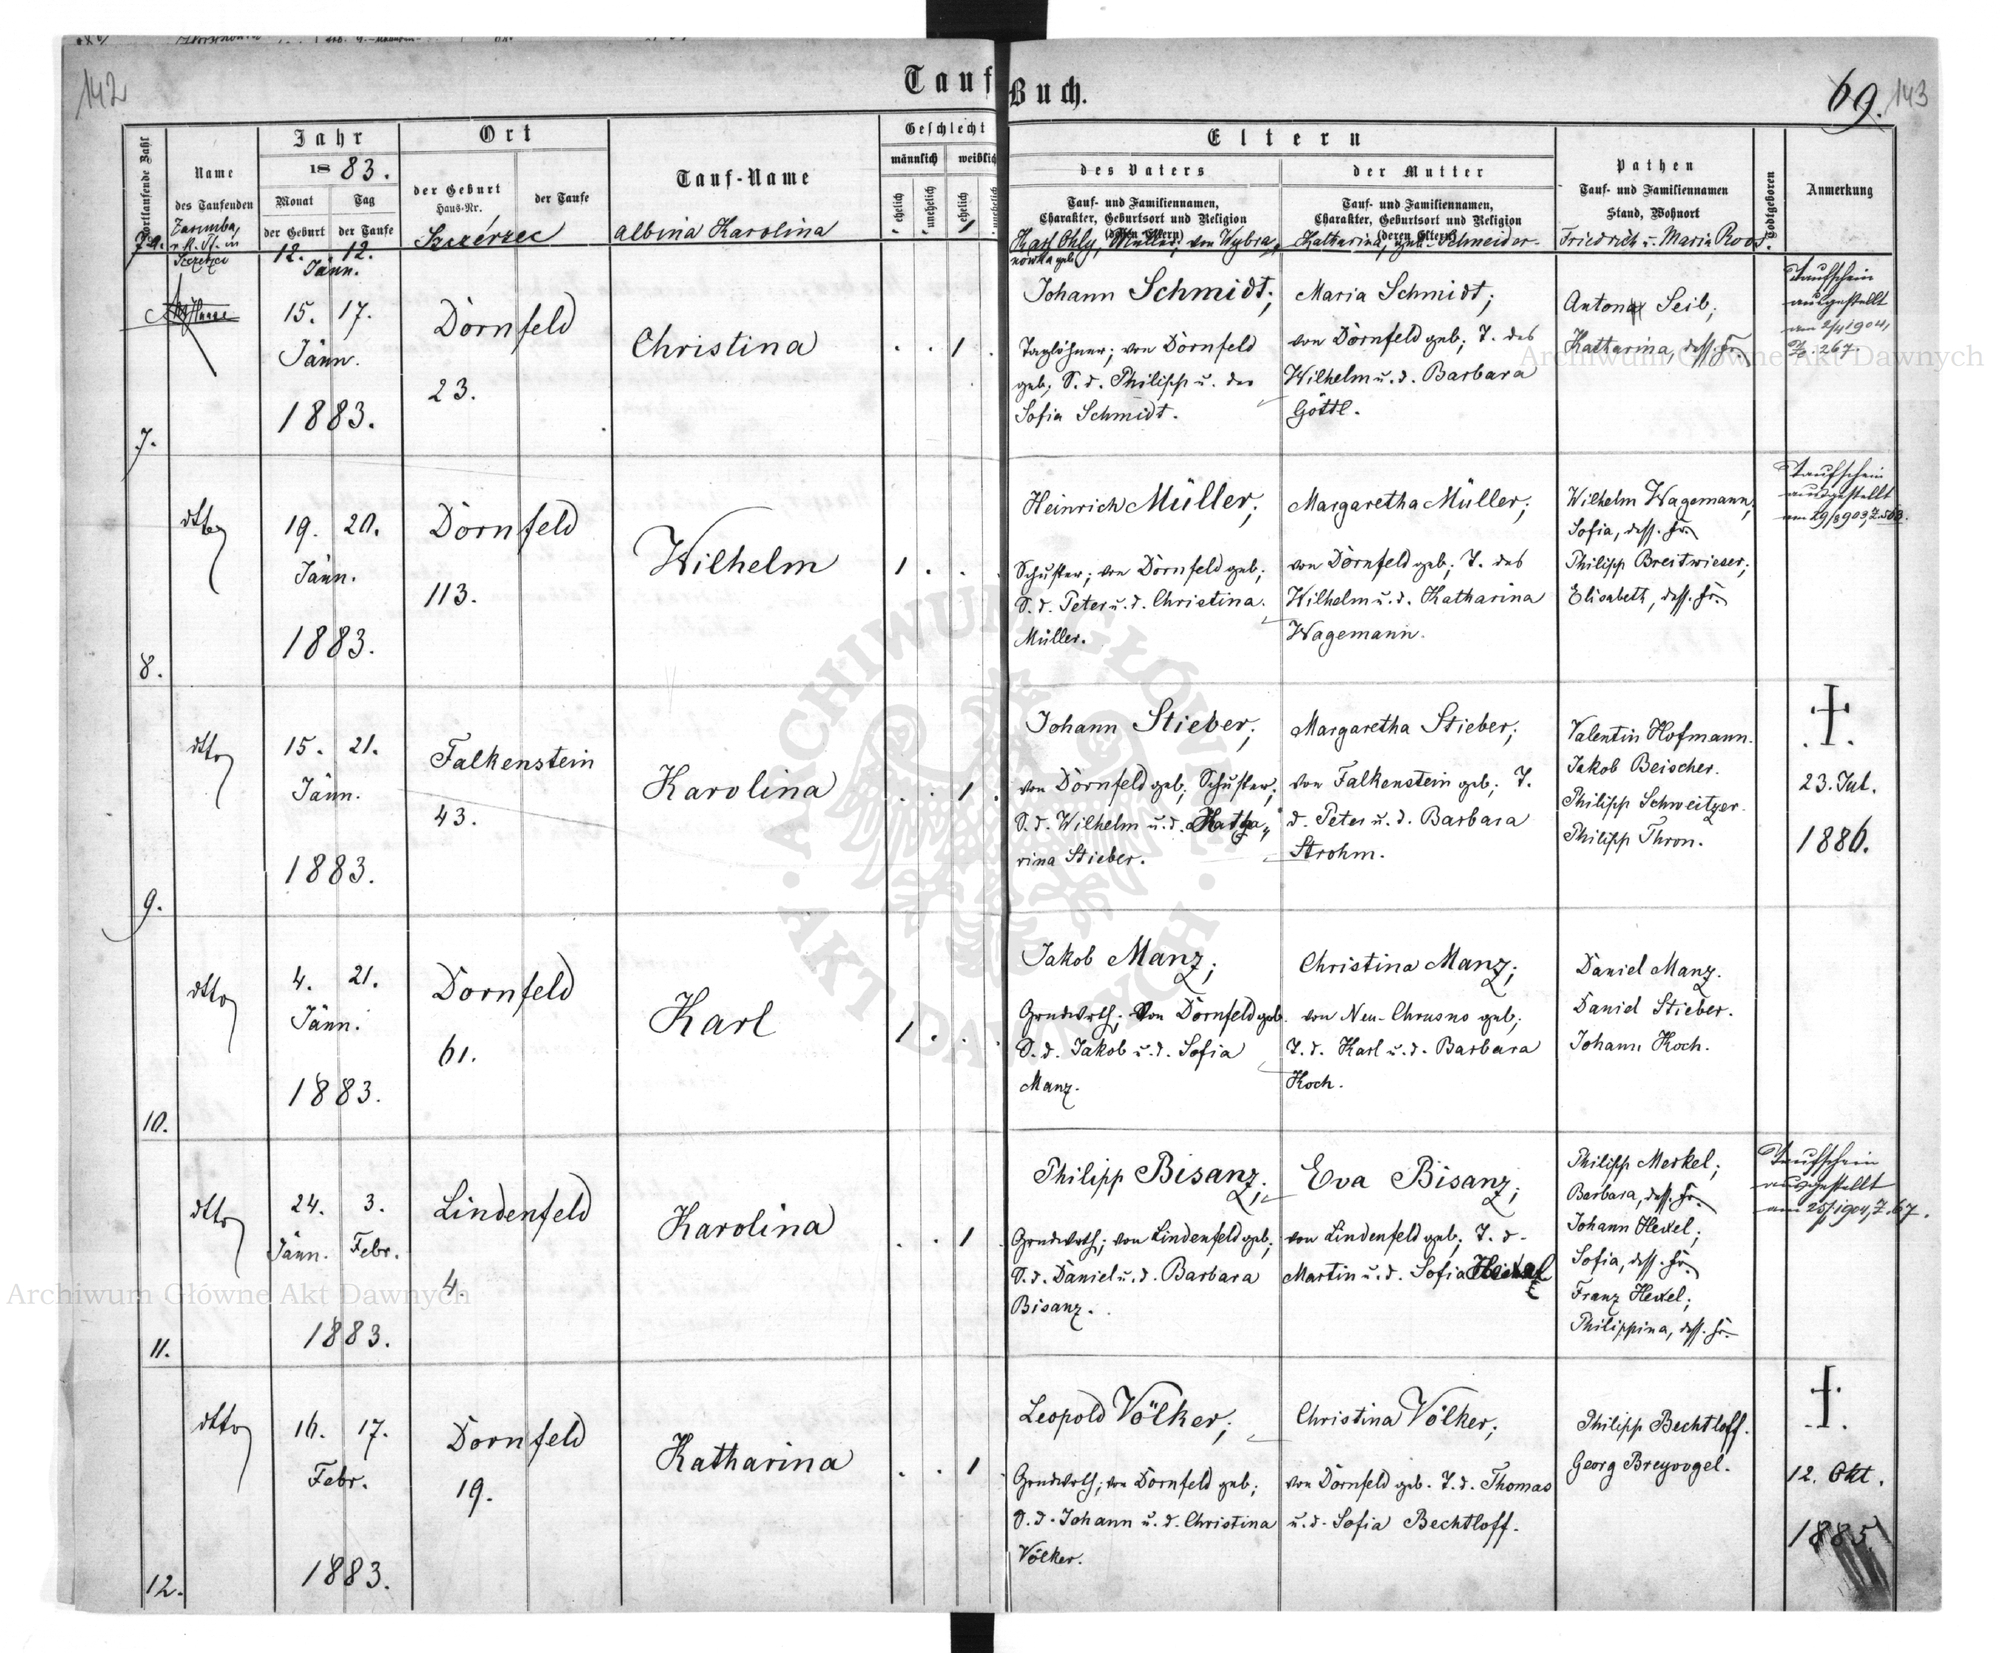 142
Tauf Buch.
69. 143
Fortlaufende Zahl
Name
des Taufenden
Jahr
1883.
Monat
Tag
der Geburt
der Taufe
Ort
der Geburt
Haus-Nr.
der Taufe
Tauf-Name
Geschlecht
männlich
weiblich
ehelich
unehelich
ehelich
unehelich
Eltern
des Vaters
Tauf- und Familiennamen,
Charakter, Geburtsort und Religion
(deren Eltern)
der Mutter
Tauf- und Familiennamen,
Charakter, Geburtsort und Religion
(deren Eltern)
Pathen
Tauf- und Familiennamen
Stand, Wohnort
Todtgeboren
Anmerkung
7a.
Zaremba,
Szczerzec
12. 12.
Jänn.
Szczérzec
Albina Karolina
1
Karl Ohly, Müller, von Wybra-
nówka geb.
Katharina, geb. Schneider.
Friedrich u. Maria Roos.
7.
15. 17.
Jänn.
1883.
Dornfeld
23.
Christina
. . 1 .
Johann Schmidt;
Taglöhner; von Dornfeld
geb; S. d. Philipp u. der
Sofia Schmidt.
Maria Schmidt;
von Dornfeld geb; T. des
Wilhelm u. d. Barbara
Göttl.
Anton Seib;
Katharina, dess. Fr.
Taufschein
ausgestellt
am 2/4 1904,
267.
8.
dtto
19. 20.
Jänn.
1883.
Dornfeld
113.
Wilhelm
1 . . .
Heinrich Müller;
Schuster; von Dornfeld geb;
S. d. Peter u. d. Christina
Müller.
Margaretha Müller;
von Dornfeld geb; T. des
Wilhelm u. d. Katharina
Wagemann.
Wilhelm Wagemann;
Sofia, dess. Fr.
Philipp Breitwieser;
Elisabeth, dess. Fr.
Taufschein
ausgestellt
9.
dtto
15. 21.
Jänn.
1883.
Falkenstein
43.
Karolina
. . 1 .
Johann Stieber;
von Dornfeld geb; Schuster;
S. d. Wilhelm u. d. Katha-
rina Stieber.
Margaretha Stieber;
von Falkenstein geb; T.
d. Peter u. d. Barbara
Strohm.
Valentin Hofmann.
Jakob Beischer.
Philipp Schweitzer.
Philipp Thron.
23. Jul.
1886.
10.
dtto
4. 21.
Jänn.
1883.
Dornfeld
61.
Karl
1 . . .
Jakob Manz;
Grndwrth; von Dornfeld geb.
S. d. Jakob u. d. Sofia
Manz.
Christina Manz;
von Neu-Chrusno geb;
T. d. Karl u. d. Barbara
Koch.
Daniel Manz.
Daniel Stieber.
Johann Koch.
11.
dtto
24. 3.
Jänn. Febr.
1883.
Lindenfeld
4.
Karolina
. . 1 .
Philipp Bisanz;
Grndwrth; von Lindenfeld geb;
S. d. Daniel u. d. Barbara
Bisanz.
Eva Bisanz;
von Lindenfeld geb; T. d.
Martin u. d. Sofia
Philipp Merkel;
Barbara, dess. Fr.
Johann Hexel;
Sofia, dess. Fr.
Franz Hexel;
Philippina, dess. Fr.
Taufschein
ausgestellt
12.
dtto
16. 17.
Febr.
1883.
Dornfeld
19.
Katharina
. . 1 .
Leopold Völker;
Grndwrth; von Dornfeld geb;
S. d. Johann u. d. Christina
Völker.
Christina Völker;
von Dornfeld geb. T. d. Thomas
u. d. Sofia Bechtloff.
Philipp Bechtloff.
Georg Breyvogel.
12. Okt.
1885.
Archiwum Główne Akt Dawnych
Archiwum Główne Akt Dawnych
ARCHIWUM GŁÓWNE · AKT DAWNYCH ·